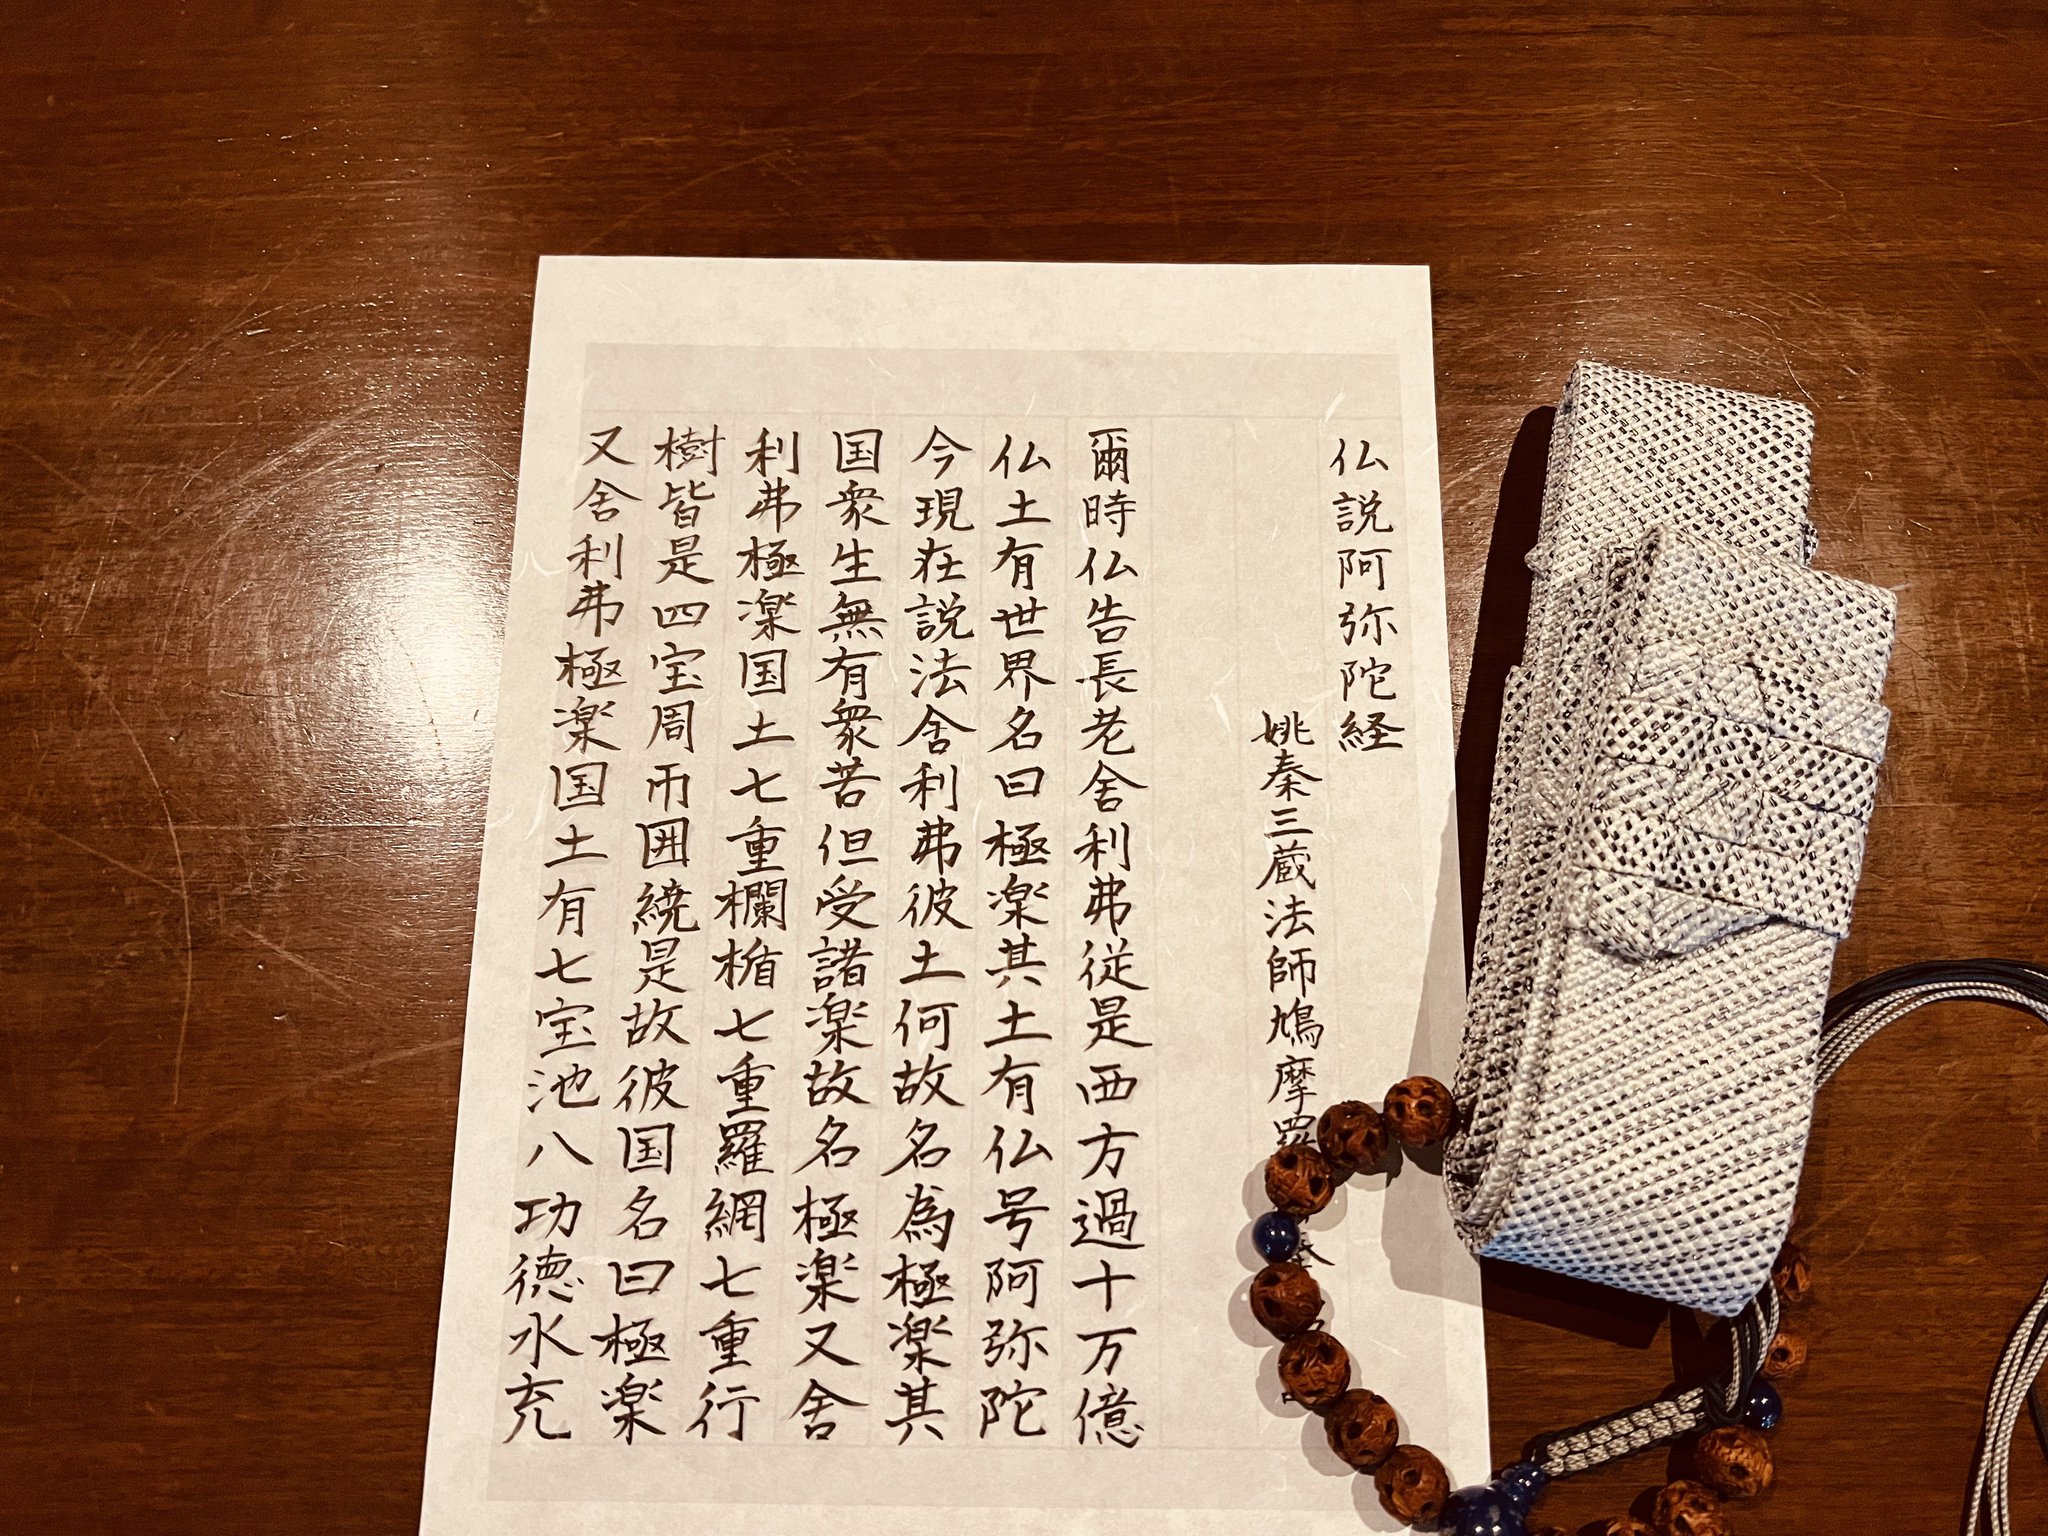 仏説阿弥陀経
姚秦三蔵法師鳩摩羅
爾時仏告長老舎利弗従是西方過十万億
仏土有世界名曰極楽其土有仏号阿弥陀
今現在説法舎利弗彼土何故名為極楽其
国衆生無有衆苦但受諸楽故名極楽又舎
利弗極楽国土七重欄楯七重羅網七重行
樹皆是四宝周帀囲繞是故彼国名曰極楽
又舎利弗極楽国土有七宝池八功徳水充